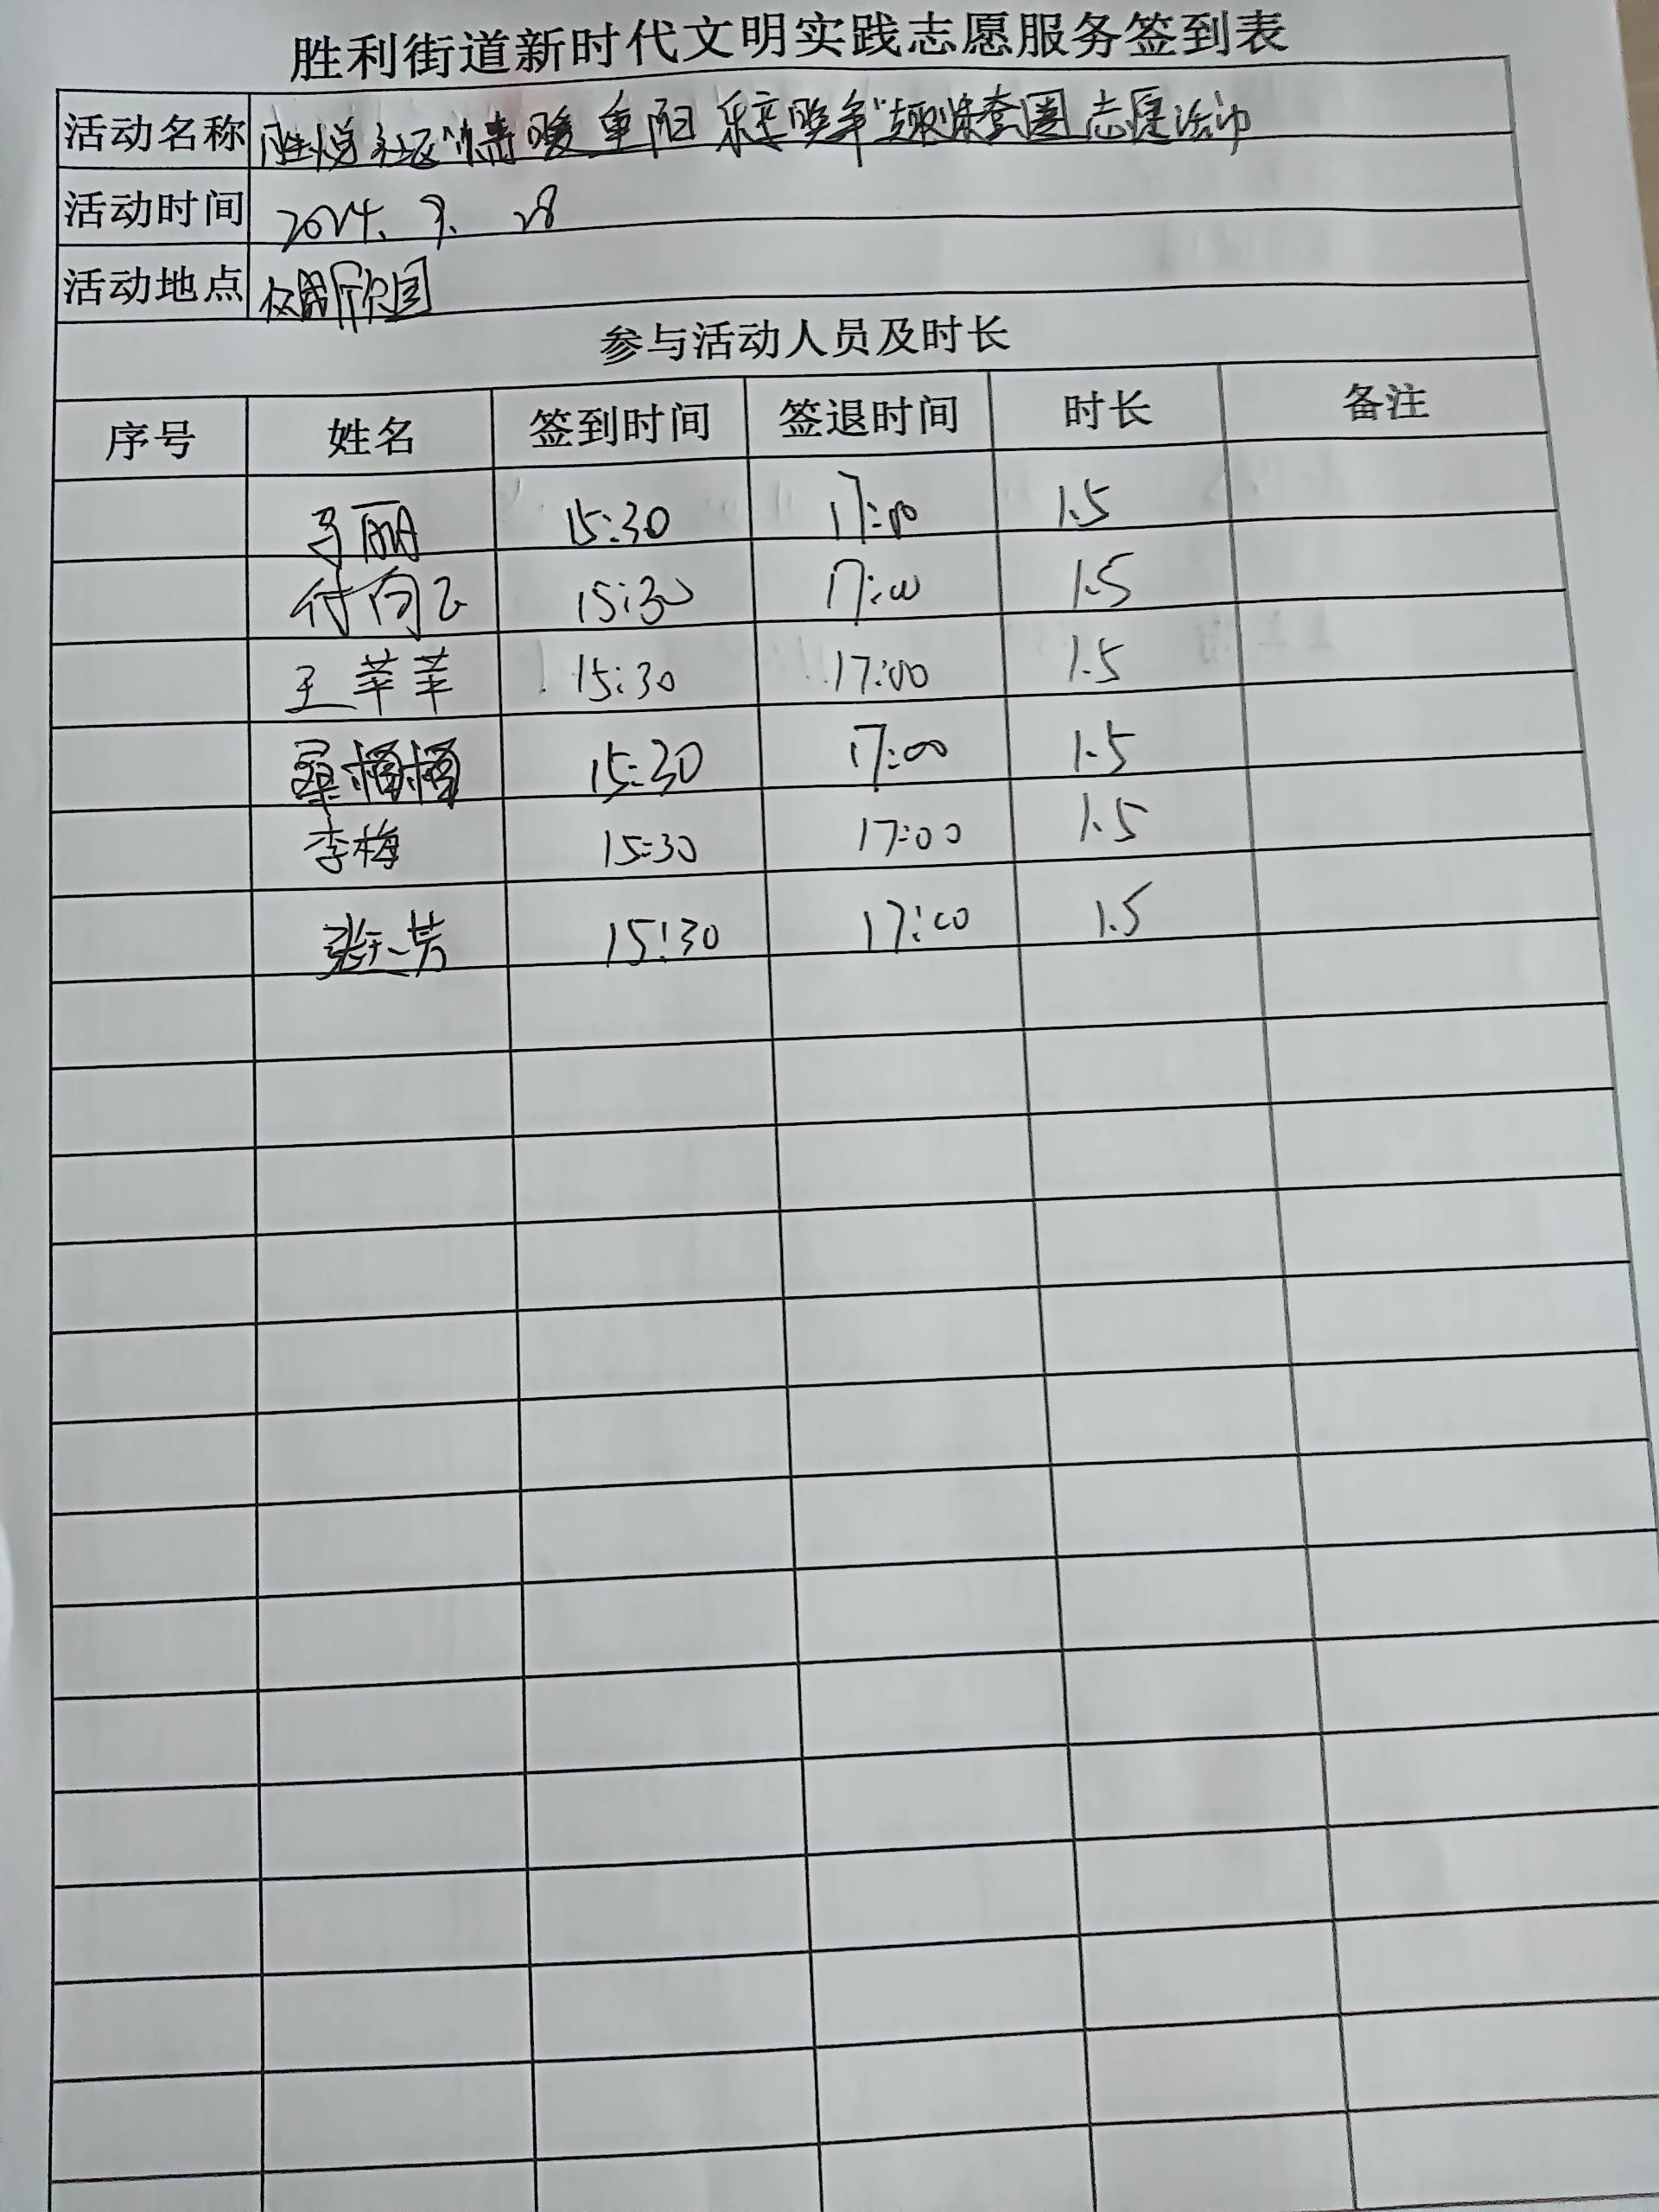 胜利街道新时代文明实践志愿服务签到表
活动名称 胜悦社区“情暖重阳 乐享晚年”趣味套圈志愿活动
活动时间 2024. 9. 28
活动地点
参与活动人员及时长
序号 姓名 签到时间 签退时间 时长 备注
马丽 15:30 17:00 1.5
付向云 15:30 17:00 1.5
王苹苹 15:30 17:00 1.5
桑 15:30 17:00 1.5
李梅 15:30 17:00 1.5
张 芳 15:30 17:00 1.5